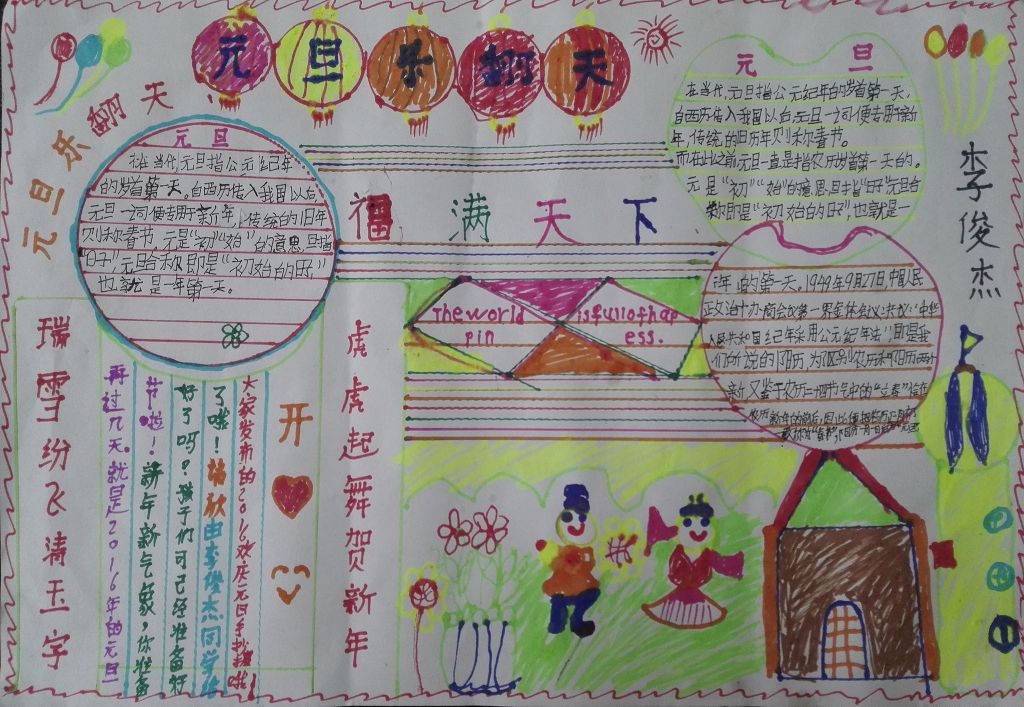 元旦乐翻天
元旦乐翻天
元旦
在当代,元旦指公元纪年
的岁首第一天。自西历传入我国以后,
元旦一词便专用于新年,传统的旧年
则称春节。元是“初”“始”的意思,旦指
“日子”元旦合称即是“初始的日子”
也就是一年第一天。
元 旦
在当代,元旦指公元纪年的岁首第一天。
自西历传入我国以后,元旦一词便专用于新
年,传统的旧历年则称春节。
而在此之前,元旦一直是指农历岁首第一天的。
元是“初”“始”的意思,旦指“日子”元旦合
称即是“初始的日子”,也就是一
年的第一天。1949年9月27日,中国人民
政治协商会议第一界全体会议决议:“中华
人民共和国纪年采用公元纪年法”即是我
们所说的阳历,为区别农历和阳历两个
新 又鉴于农历二十四节气中的“立春”恰在
李俊杰
福满天下
The world is full of hap
pin ess.
瑞雪纷飞清玉宇
虎虎起舞贺新年
开
再过几天。就是2016年的元旦
节啦!新年新气象,你准备
好了吗?孩子们可已经准备好
了哦!
大家发新的2016欢庆元旦手抄报啦!